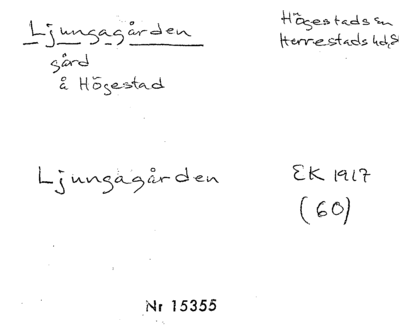 Ljungagården
Högestads sn
gård
Herrestads hd,
å Högestad
Ljungagården
EK 1917
(60)
Nr 15355